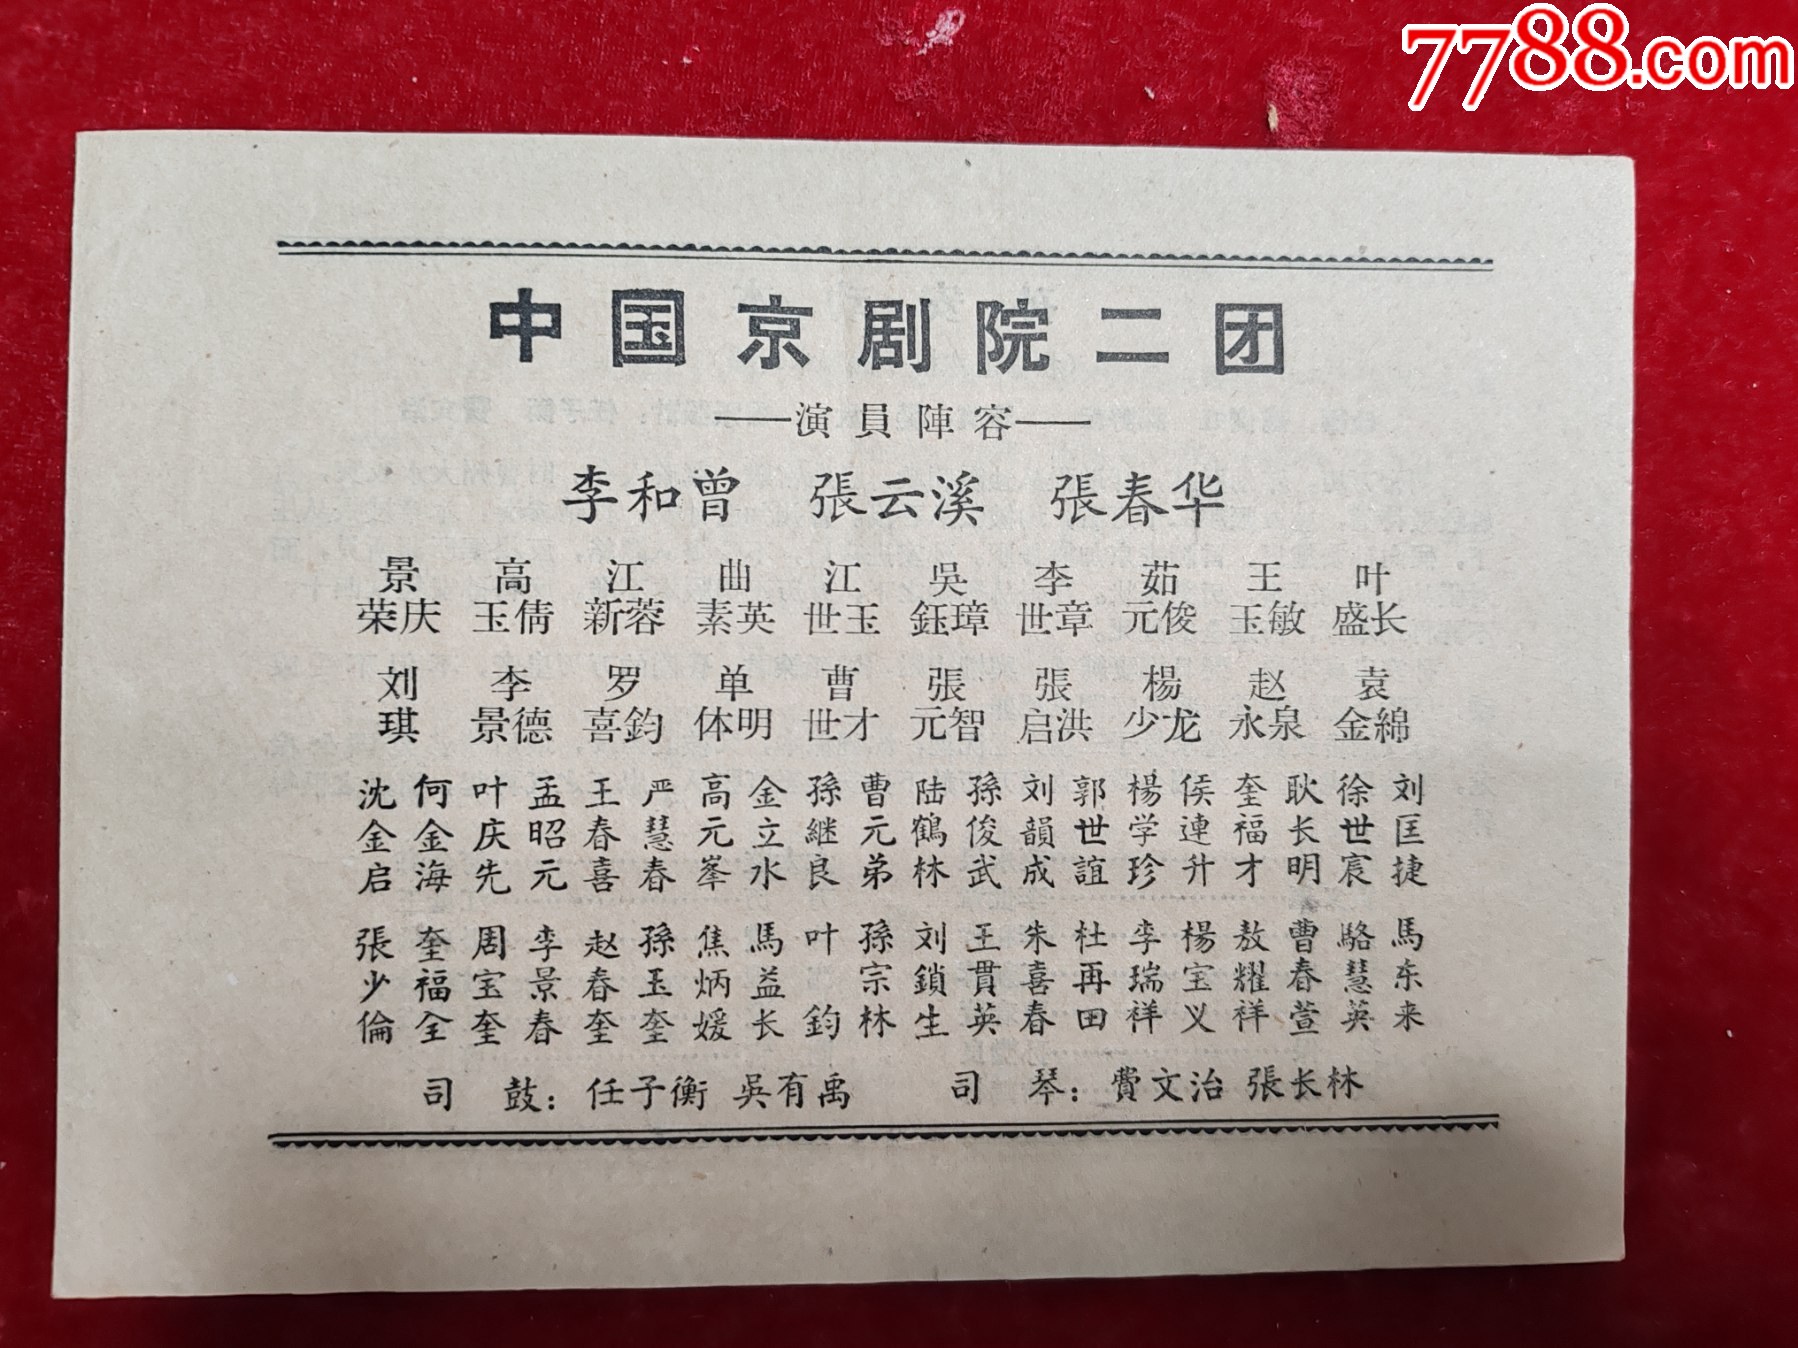 7788.com
中国京剧院二团
——演員陣容——
李和曾 張云溪 張春华
景 高 江 曲 江 吳 李 茹 王 叶
荣庆 玉倩 新蓉 素英 世玉 鈺璋 世章 元俊 玉敏 盛长
刘 李 罗 单 曹 張 張 楊 赵 袁
琪 景德 喜鈞 体明 世才 元智 启洪 少龙 永泉 金綿
沈 何 叶 孟 王 严 高 金 孫 曹 陆 孫 刘 郭 楊 侯 奎 耿 徐 刘
金 金 庆 昭 春 慧 元 立 継 元 鶴 俊 韻 世 学 連 福 长 世 匡
启 海 先 元 喜 春 峯 水 良 弟 林 武 成 誼 珍 升 才 明 宸 捷
張 奎 周 李 赵 孫 焦 馬 叶 孫 刘 王 朱 杜 李 楊 敖 曹 駱 馬
少 福 宝 景 春 玉 炳 益 宗 鎖 貫 喜 再 瑞 宝 耀 春 慧 东
倫 全 奎 春 奎 奎 媛 长 鈞 林 生 英 春 田 祥 义 祥 萱 英 来
司 鼓：任子衡 吳有禹 司 琴：費文治 張长林